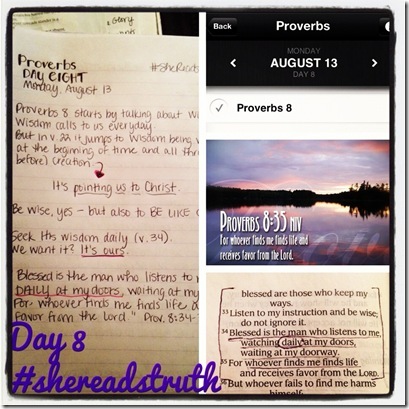 Glory
Proverbs
DAY EIGHT
Monday, August 13
#SheReads
Proverbs 8 starts by talking about
Wisdom calls to us everyday.
But in v. 22 it jumps to Wisdom being
at the beginning of time and all
before) creation.
It's pointing us to Christ.
Be wise, yes - but also to BE LIKE
Seek His wisdom daily (v. 34).
We want it? It's ours.
Blessed is the man who listens to
DAILY at my doors, waiting at my
For whoever finds me finds life
favor from the Lord." Prov. 8:34-
Day 8
#shereadstruth
Back
Proverbs
MONDAY
AUGUST 13
DAY 8
Proverbs 8
PROVERBS 8:35 NIV
For whoever finds me finds life and
receives favor from the Lord.
blessed are those who keep my
ways.
33 Listen to my instruction and be wise;
do not ignore it.
34 Blessed is the man who listens to me,
watching daily at my doors,
waiting at my doorway.
35 For whoever finds me finds life
and receives favor from the LORD.
36 But whoever fails to find me harms
himself